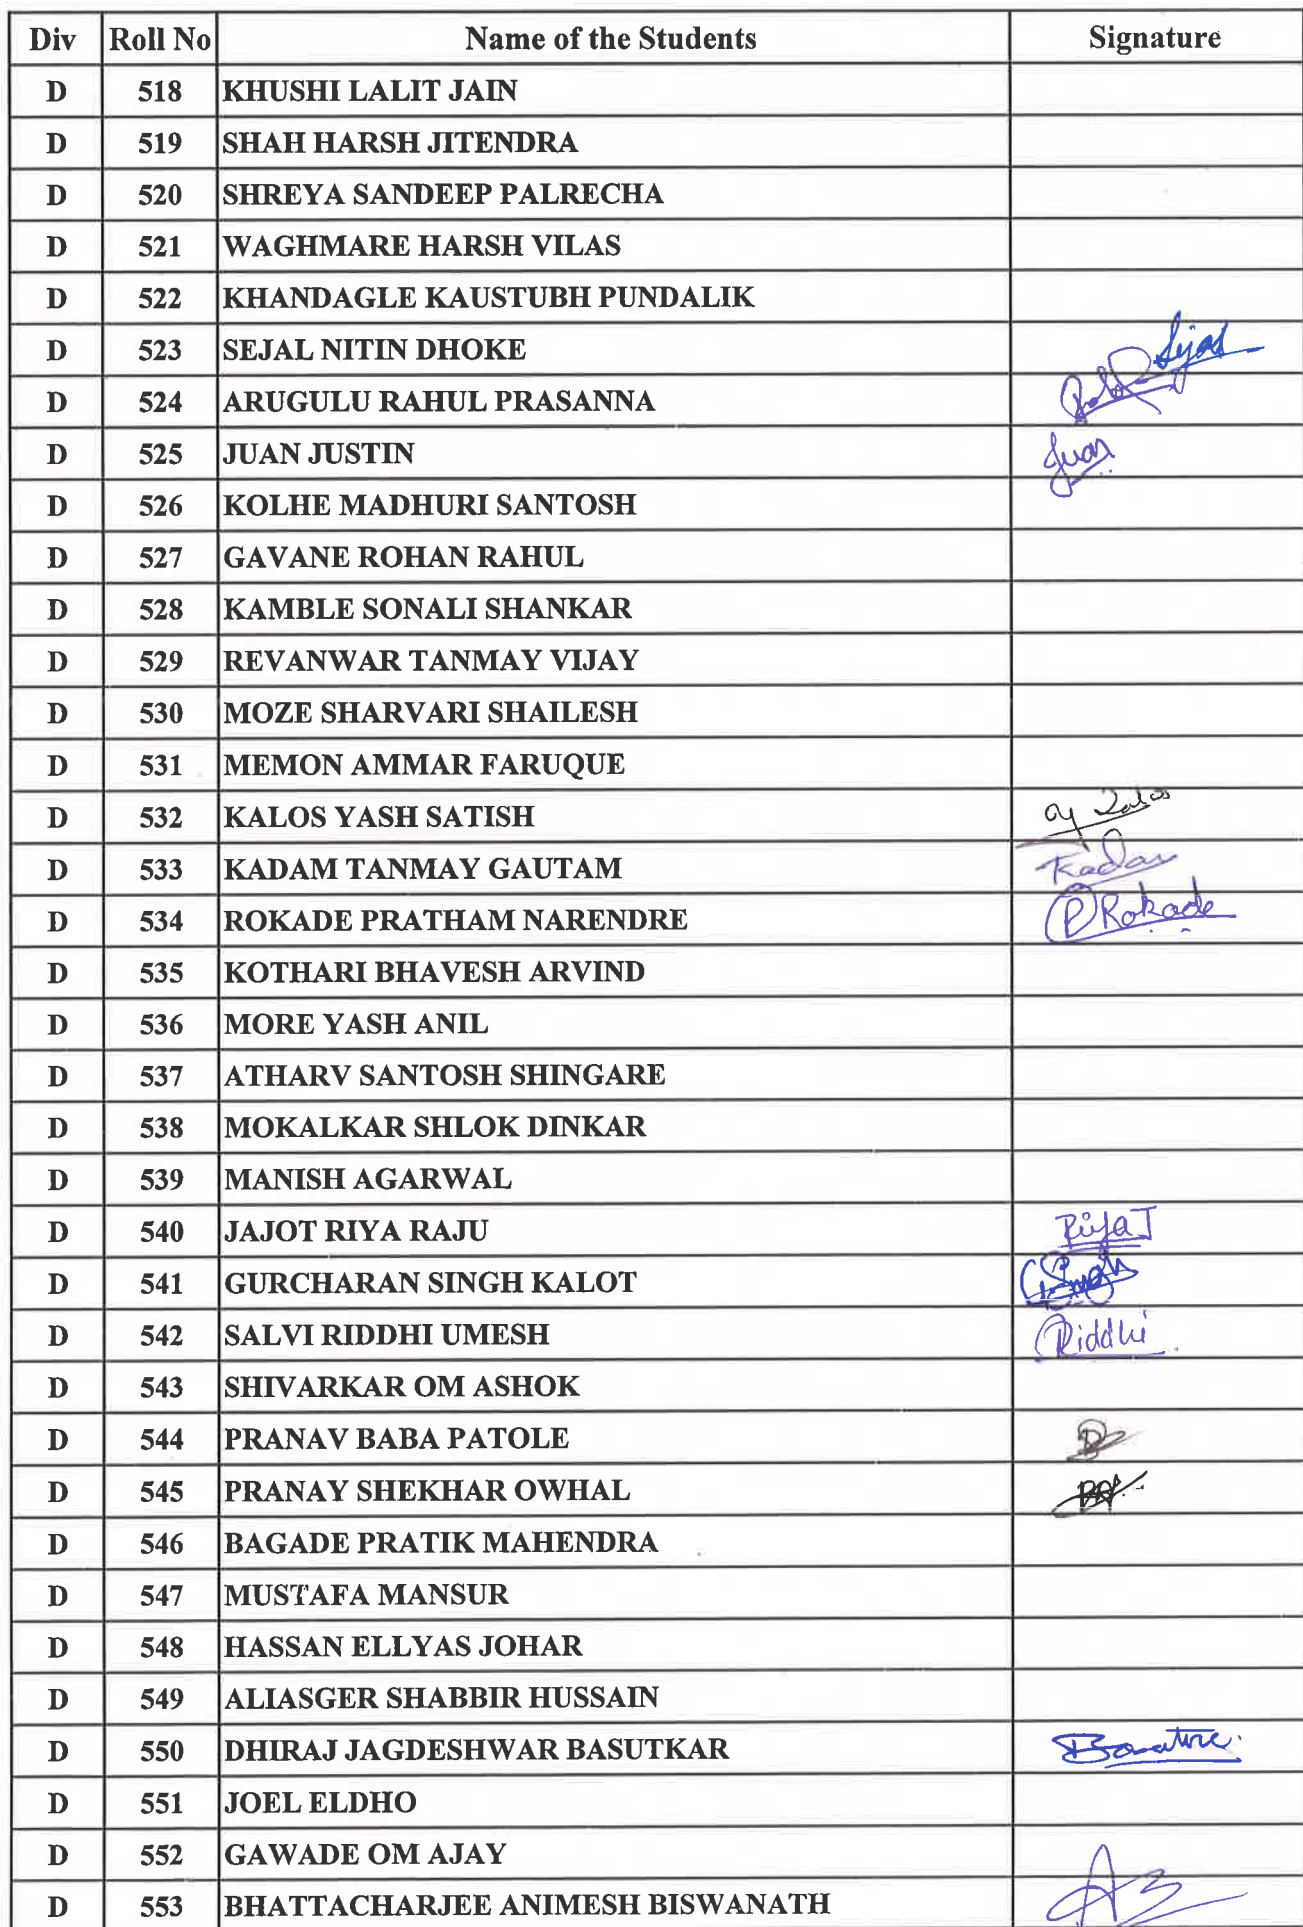 Div Roll No Name of the Students Signature
D 518 KHUSHI LALIT JAIN
D 519 SHAH HARSH JITENDRA
D 520 SHREYA SANDEEP PALRECHA
D 521 WAGHMARE HARSH VILAS
D 522 KHANDAGLE KAUSTUBH PUNDALIK
D 523 SEJAL NITIN DHOKE
D 524 ARUGULU RAHUL PRASANNA
D 525 JUAN JUSTIN Juan
D 526 KOLHE MADHURI SANTOSH
D 527 GAVANE ROHAN RAHUL
D 528 KAMBLE SONALI SHANKAR
D 529 REVANWAR TANMAY VIJAY
D 530 MOZE SHARVARI SHAILESH
D 531 MEMON AMMAR FARUQUE
D 532 KALOS YASH SATISH
D 533 KADAM TANMAY GAUTAM Kadam
D 534 ROKADE PRATHAM NARENDRE P Rokade
D 535 KOTHARI BHAVESH ARVIND
D 536 MORE YASH ANIL
D 537 ATHARV SANTOSH SHINGARE
D 538 MOKALKAR SHLOK DINKAR
D 539 MANISH AGARWAL
D 540 JAJOT RIYA RAJU Riya J
D 541 GURCHARAN SINGH KALOT G. Singh
D 542 SALVI RIDDHI UMESH Riddhi
D 543 SHIVARKAR OM ASHOK
D 544 PRANAV BABA PATOLE
D 545 PRANAY SHEKHAR OWHAL
D 546 BAGADE PRATIK MAHENDRA
D 547 MUSTAFA MANSUR
D 548 HASSAN ELLYAS JOHAR
D 549 ALIASGER SHABBIR HUSSAIN
D 550 DHIRAJ JAGDESHWAR BASUTKAR
D 551 JOEL ELDHO
D 552 GAWADE OM AJAY
D 553 BHATTACHARJEE ANIMESH BISWANATH